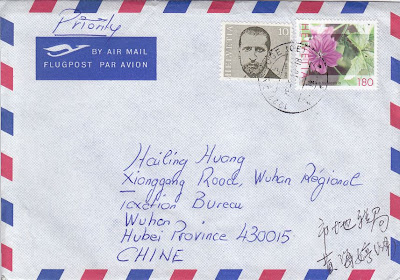 Priority
BY AIR MAIL
FLUGPOST PAR AVION
HELVETIA 10
HELVETIA 180
Hailing Huang
Xionggang Road, Wuhan Régional
Taxation Bureau
Wuhan
Hubei Province 430015
CHINE
市地税局
黄海